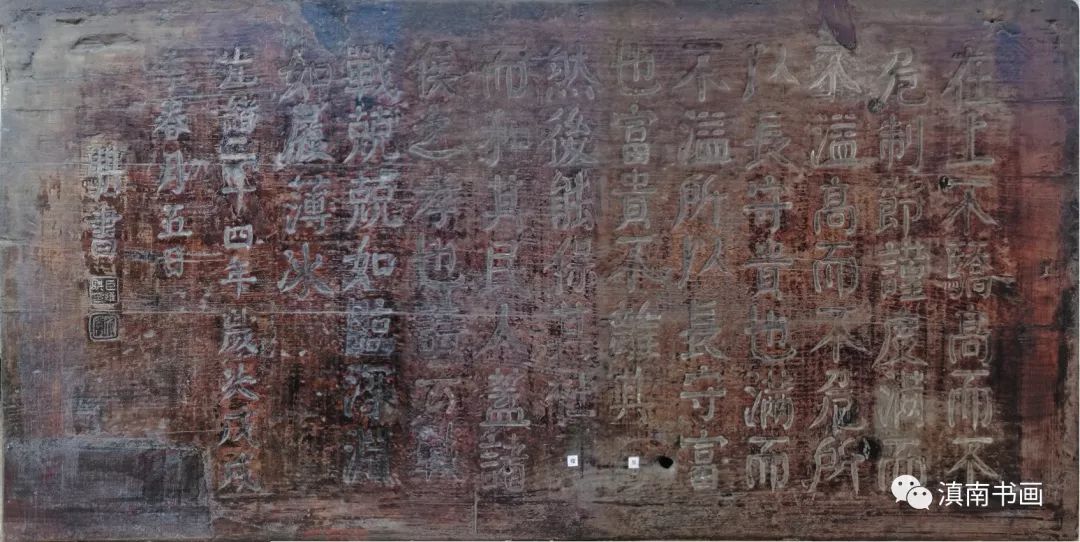 在上不驕高而不
危制節謹度滿而
不溢高而不危所
以長守貴也滿而
不溢所以長守富
也富貴不離其
然後能保其社
而和其民人蓋諸
侯之孝也詩云戰
戰兢兢如臨深淵
如履薄冰
四年歲次戊戌
春月五日
書
滇南书画